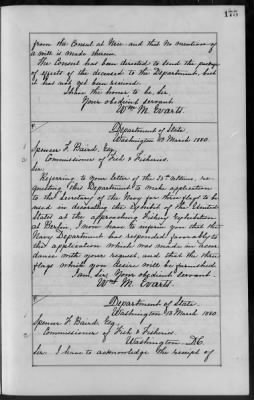 175
from the Consul at Nice and that no mention of
a will is made therein.
The Consul has been directed to send the package
of effects of the deceased to the Department, but
it has not yet been received.
I have the honor to be, Sir,
Your obedient servant
Wm M. Evarts.
Department of State
Washington 13 March 1880.
Spencer F. Baird, Esq.
Commissioner of Fish & Fisheries.
Sir:
Referring to your letter of the 25th ultimo, re-
questing this Department to make application
to the Secretary of the Navy for three flags to be
used in decorating the exhibit of the United
States at the approaching Fishery Exhibition
at Berlin, I now have to inform you that the
Navy Department has responded favorably to
this application which was made in accor
dance with your request, and that the three
flags which you desire will be furnished.
I am, Sir, Your obedient servant.
Wm M. Evarts.
Department of State.
Washington, 13 March 1880
Spencer F. Baird, Esq.
Commissioner of Fish & Fisheries.
Washington D.C.
Sir: I have to acknowledge the receipt of